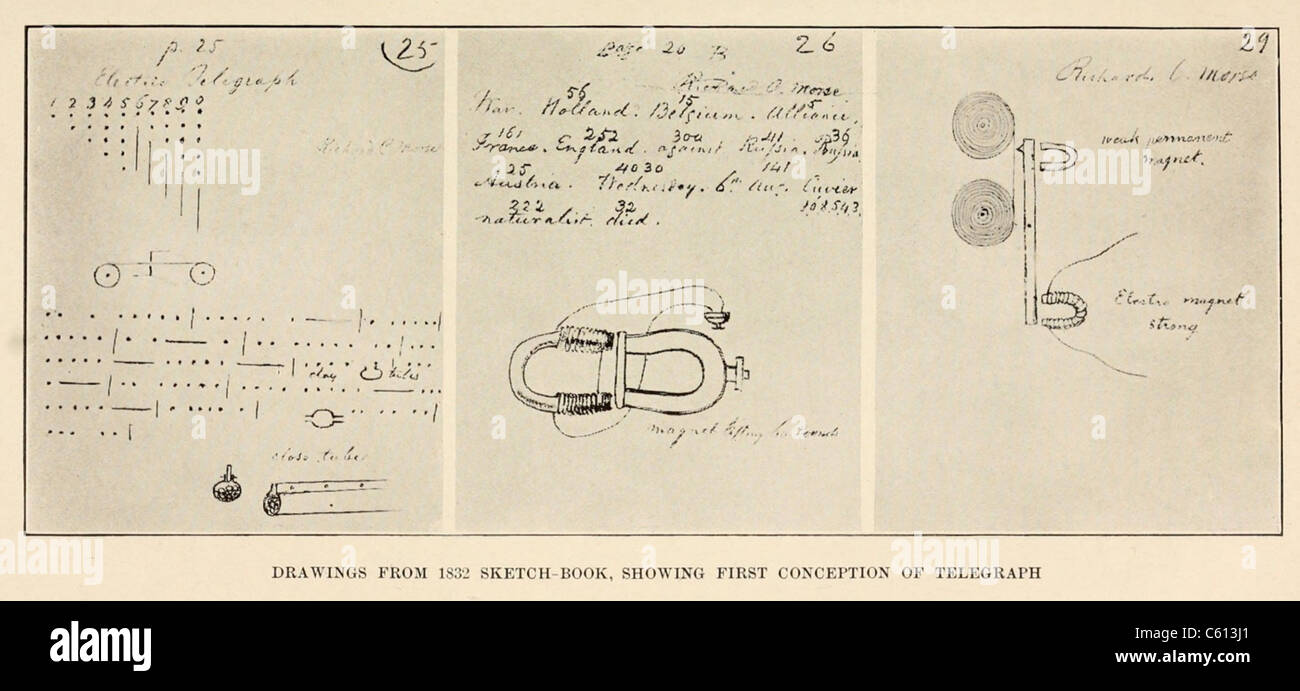 p. 25
25
Electric Telegraph
1 2 3 4 5 6 7 8 9 0
Richard C. Morse
clay tubes
close tube
Page 20
26
Richard C. Morse
56 15 5
War. Holland. Belgium. Alliance,
161 252 300 41 36
France. England. against Russia. Prussia
25 4030 141
Austria. Wednesday. 6th Aug. Cuvier
222 32
naturalist. died.
magnet lifting
29
Richard C. Morse
weak permanent
magnet.
Electro magnet
strong
DRAWINGS FROM 1832 SKETCH-BOOK, SHOWING FIRST CONCEPTION OF TELEGRAPH
alamy
alamy
Image ID: C613J1
www.alamy.com